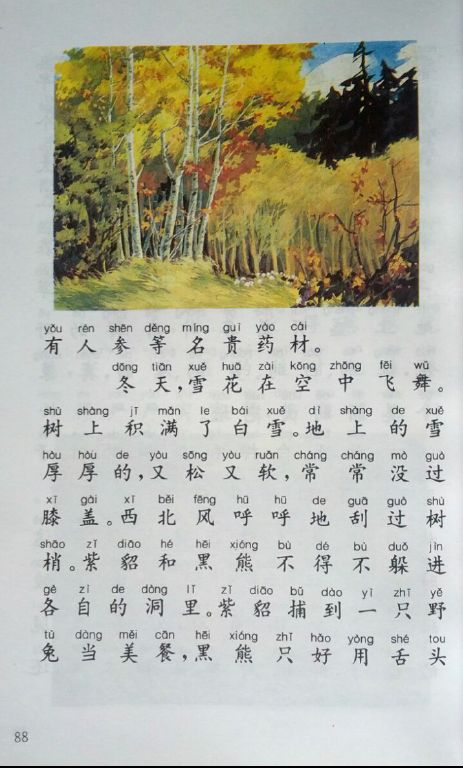 yǒu rén shēn děng míng guì yào cái
有人参等名贵药材。
dōng tiān xuě huā zài kōng zhōng fēi wǔ
冬天,雪花在空中飞舞。
shù shàng jī mǎn le bái xuě dì shàng de xuě
树上积满了白雪。地上的雪
hòu hòu de yòu sōng yòu ruǎn cháng cháng mò guò
厚厚的,又松又软,常常没过
xī gài xī běi fēng hū hū de guā guò shù
膝盖。西北风呼呼地刮过树
shāo zǐ diāo hé hēi xióng bù dé bù duǒ jìn
梢。紫貂和黑熊不得不躲进
gè zì de dòng lǐ zǐ diāo bǔ dào yì zhī yě
各自的洞里。紫貂捕到一只野
tù dàng měi cān hēi xióng zhǐ hǎo yòng shé tou
兔当美餐,黑熊只好用舌头
88